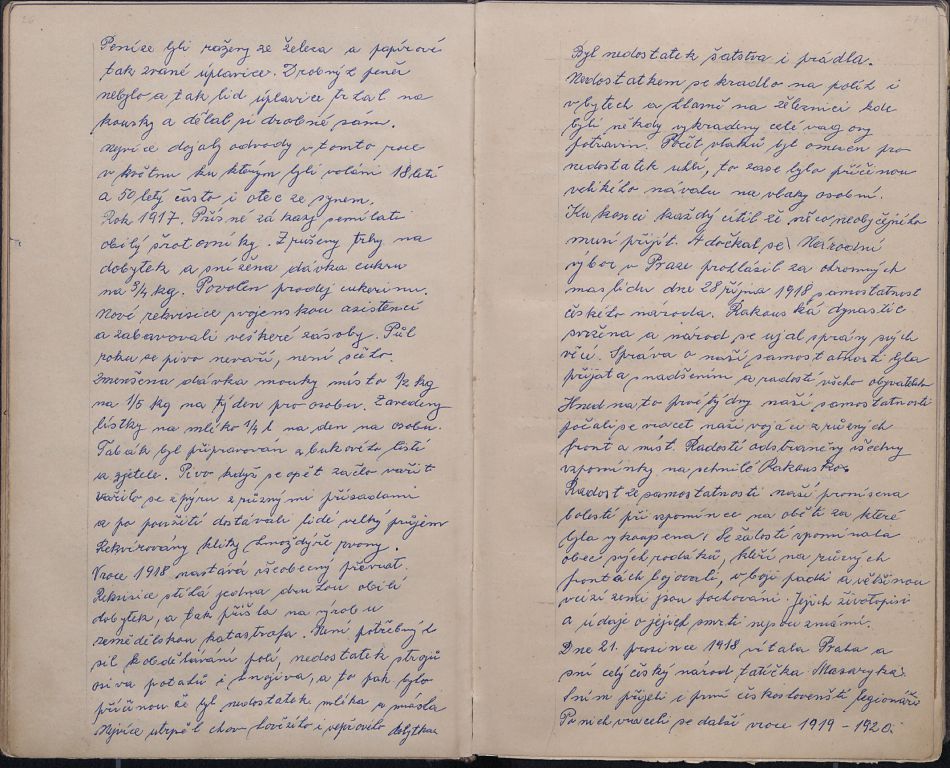 26
Peníze byli raženy ze železa a papírové
tak zvané úplavice. Drobných peněz
nebylo a tak lid úplavice trhal na
kousky a dělal si drobné sám.
Nejvíce dojaly odvody v tomto roce
v květnu ku kterým byli voláni 18 letí
a 50 letý často i otec ze synem.
Rok 1917. Přísné zákazy semílati
obilý šrotovníky. Zrušeny trhy na
dobytek a snížena dávka cukru
na 3/4 kg. Povolen prodej cukerinu.
Nové rekvisice vojenskou asistencí
a zabavovali veškeré zásoby. Půl
roku se pivo nevaří, není z čeho.
Zmenšena dávka mouky místo 1/2 kg
na 1/5 kg na týden pro osobu. Zavedeny
lístky na mléko 1/4 l na den na osobu.
Tabák byl připravován z bukového listí
a zjetele. Pivo když se opět začlo vařit
vařilo se z pýru z různými přísadami
a po použití dostávali lidé velký průjem
Rekvirovány kliky hmoždýře zvony.
V roce 1918 nastává všeobecný převrat.
Rekvisice stíhá jedna druhou obilí
dobytek, a tak přišla na výrobu
zemědělskou katastrofa. Není potřebných
sil k obdělávání polí, nedostatek strojů
osiva potahů i hnojiva, a to pak bylo
příčinou že byl nedostatek mléka a másla
Nejvíce utrpěl chov hovězího i vepřového dobytka.
27
Byl nedostatek šatstva i prádla.
Nedostatkem se kradlo na polích i
v bytech a hlavně na železnici kde
byli někdy vykradeny celé vagony
potravin. Počet vlaků byl omezen pro
nedostatek uhlí, to zase bylo příčinou
velikého návalu na vlaky osobní.
Ku konci každý cítil že něco neobyčejného
musí přijít. A dočkal se. Národní
výbor v Praze prohlásil za ohromných
mas lidu dne 28 října 1918 samostatnost
českého národa. Rakouská dynastie
svržena a národ se ujal správy svých
věcí. Správa o naší samostatnosti byla
přijata s nadšením a radostí všeho obyvatelstva
Hned na to prvé týdny naší samostatnosti
počali se vracet naši vojáci z různých
front a míst. Radostí odstraněny všechny
vzpomínky na zetlelé Rakousko.
Radost ze samostatnosti naší pronísena
bolestí při vzpomínce na oběti za které
byla vykoupena; Se žalostí vzpomínala
obec svých rodáků, kteří na různých
frontách bojovali, v boji padli a většinou
v cizí zemi jsou pochováni. Jejich životopisi
a údaje o jejich smrti nejsou známi.
Dne 21. prosince 1918 vítala Praha a
sní celý český národ tatíčka Masaryka.
S ním přijeli i první českoslovenští legionáři
Po nich vraceli se další v roce 1919 - 1920.